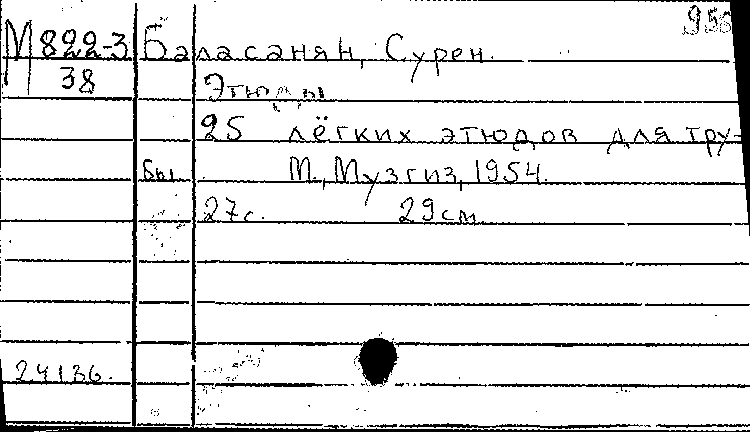 М822-3 Баласанян, Сурен.
38 Этюды
25 лёгких этюдов для тру-
бы М., Музгиз, 1954.
27с. 29см
24136.